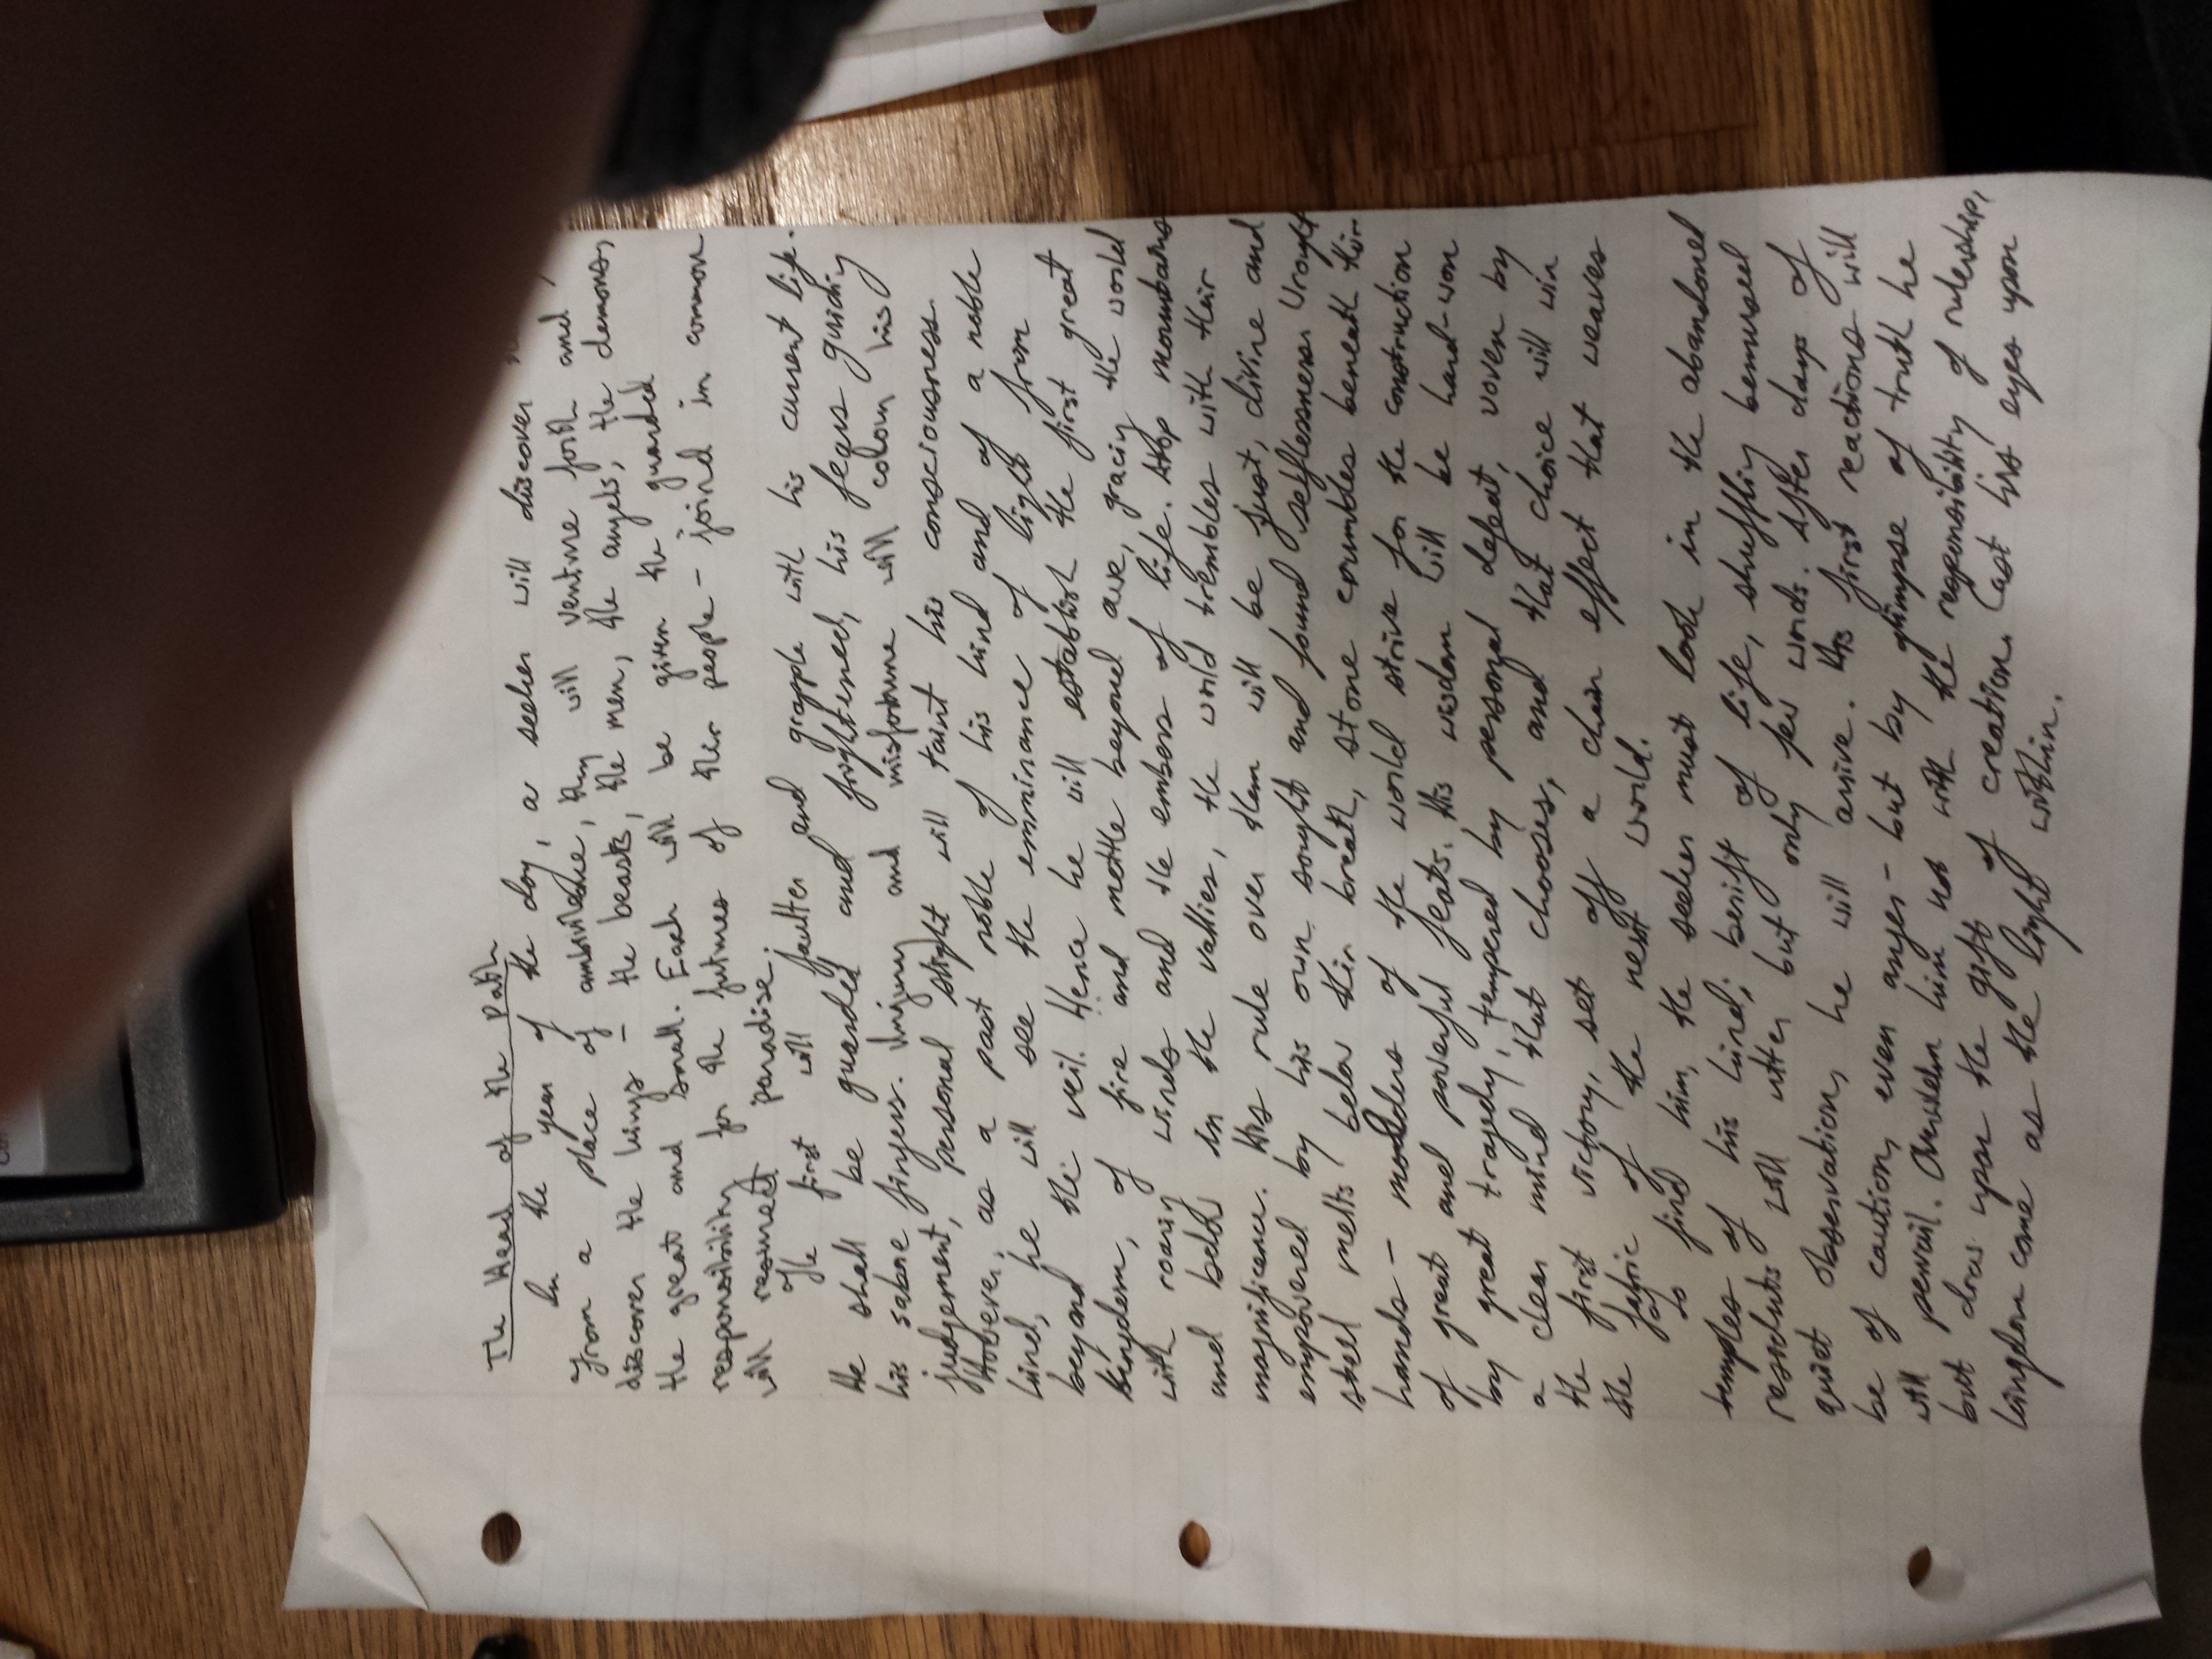 The Head of the Path
In the year of the day, a seeker will discover
From a place of ambivilence, they will venture forth and
discover the kings - the beasts, the men, the angels, the demons,
the great and small. Each will be given the guarded
responsibility for the futures of their people - joined in common
will resurrect paradise.
The first will faulter and grapple with his current life.
He shall be guarded and frightened, his fears guiding
his sabre fingers. Injury and misfortune will colour his
judgement, personal slight will taint his consciousness.
However, as a past noble of his kind and of a noble
kind, he will see the emminance of light from
beyond the veil. Hence he will establish the first great
kingdom, of fire and mettle beyond awe, gracing the world
with roaring winds and the embers of life. Atop mountains
and below in the vallies, the world trembles with their
magnificence. His rule over them will be just, divine and
empowered by his own sought and found selflessness. Wrought
steel melts below their breath, stone crumbles beneath their
hands - moulders of the world strive for the construction
of great and powerful feats. His wisdom will be hard-won
by great tragedy, tempered by personal defeat, woven by
a clear mind that chooses, and that choice will win
the first victory, set off a chain effect that weaves
the fabric of the next world.
To find him, the seeker must look in the abandoned
temples of his kind; berift of life, shuffling bemused
residents will utter but only few words. After days of
quiet observation, he will arrive. His first reactions will
be of caution, even anger - but by glimpse of truth he
will prevail. Overwhelm him not with the responsibility of rulership,
but draw upon the gift of creation. Cast his eyes upon
kingdom come as the light within.